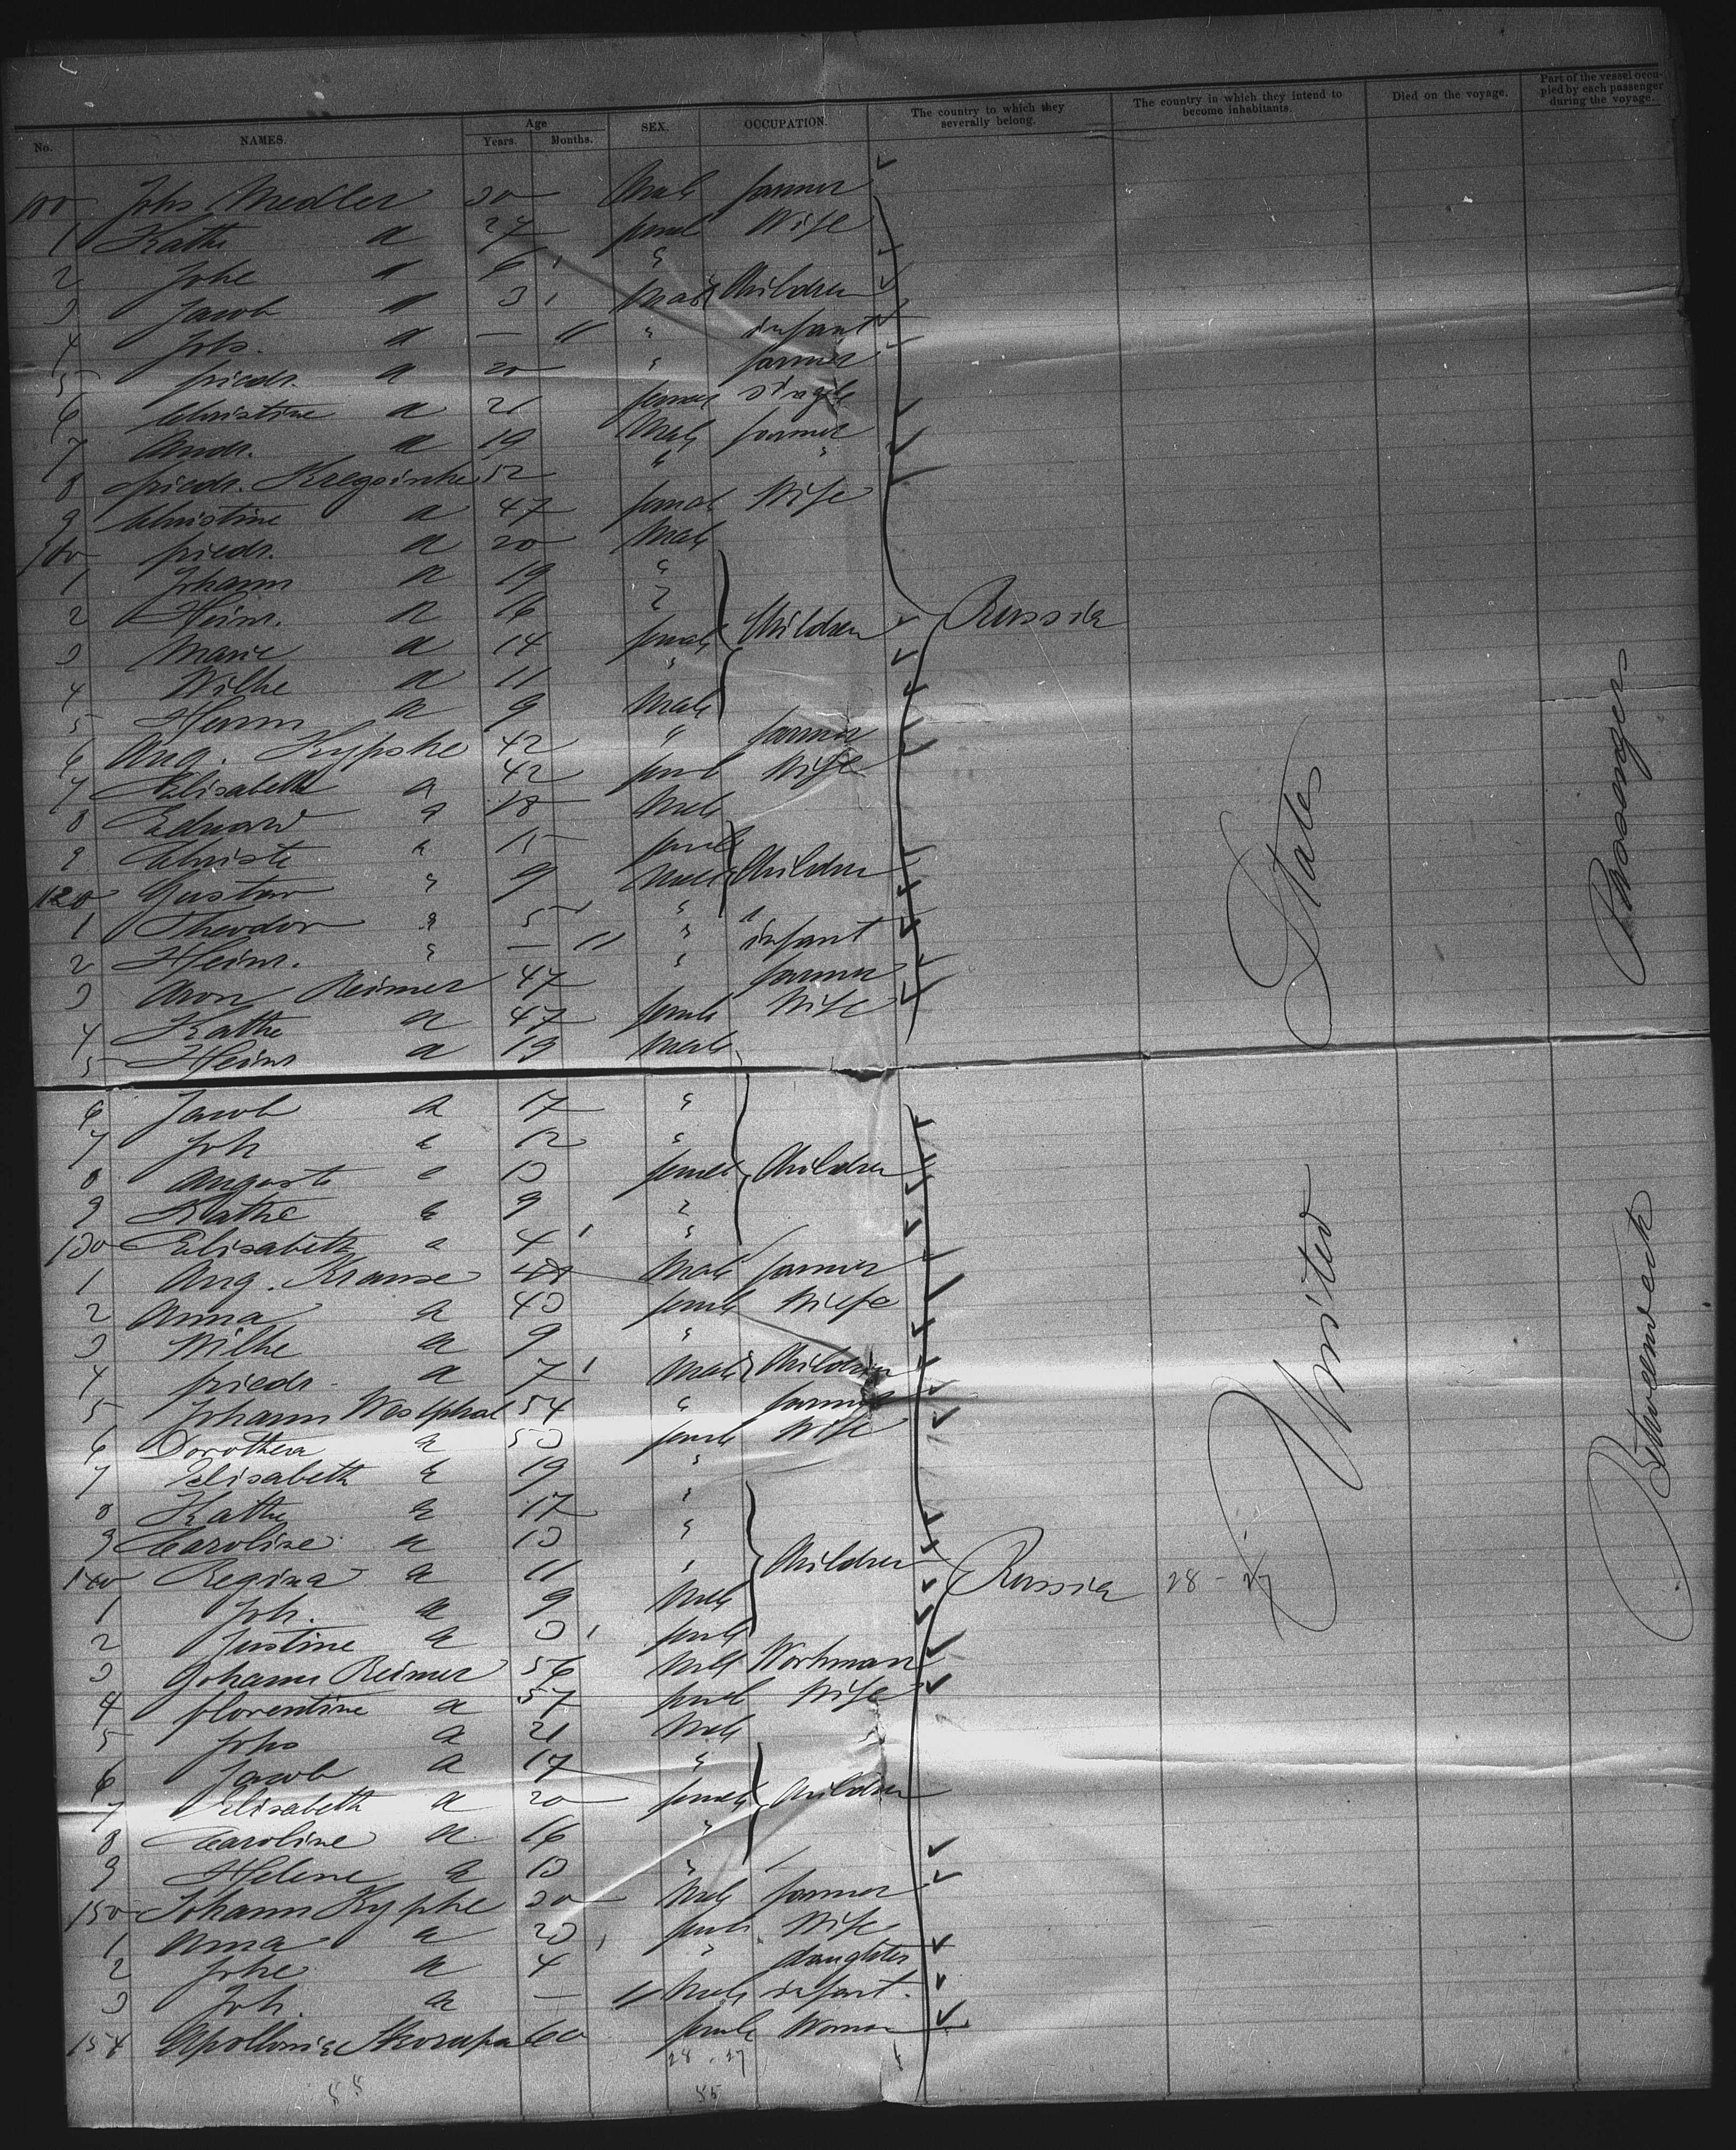 No. NAMES. Age Years. Months. SEX. OCCUPATION. The country to which they severally belong. The country in which they intend to become inhabitants. Died on the voyage. Part of the vessel occupied by each passenger during the voyage.
100 Johs Medler 30 Male farmer
1 Kathe a 27 femal Wife
2 Johe a 6 "
3 Jacob a 3 Male Children
4 Johs. a — 11 " infant
5 friedr. a 20 " farmer
6 Christine a 21 female single
7 Andr. a 19 Male farmer
8 friedr. 52 " "
9 Christine a 47 femal Wife
110 friedr. a 20 Male
1 Johann a 19 "
2 Heinr. a 16 " Children Russia
3 Marie a 14 female
4 Wilhe a 11 "
5 Herm a 9 Male
6 Aug. Kypske 42 " farmer
7 Elisabeth a 42 femal Wife
8 Eduard a 18 Male
9 Christe a 15 female
120 Gustav " 9 Male Children
1 Theodor " 5 " "
2 Heinr. " — 11 " infant
3 Aron Reimer 47 " farmer
4 Kathe a 47 female Wife
5 Heinr a 19 Male
6 Jacob a 17 "
7 Joh a 12 "
8 Auguste a 13 female Children
9 Kathe a 9 "
130 Elisabeth a 4 "
1 Aug. Krause 48 Male farmer
2 Anna a 43 female Wife
3 Wilhe a 9 "
4 friedr. a 7 Male Children
5 Johann Westphal 54 " farmer
6 Dorothea a 53 female Wife
7 Elisabeth a 19 "
8 Kathe a 17 "
9 Caroline a 13 "
140 Regina a 11 " Children Russia 28 - 27
1 Joh. a 9 Male
2 Justine a 3 female
3 Johann Reimer 56 Male Workman
4 florentine a 57 femal Wife
5 Johs a 21 Male
6 Jacob a 17 "
7 Elisabeth a 20 female Children
8 Caroline a 16 "
9 Helene a 13 "
150 Johann Kyphe 30 Male farmer
1 Anna a 23 female Wife
2 Johe a 4 " daughter
3 Joh. a — 11 Male infant.
154 Apollonia 60 female Woman
28 - 27
55
55
United States
Betweendeck Passengers